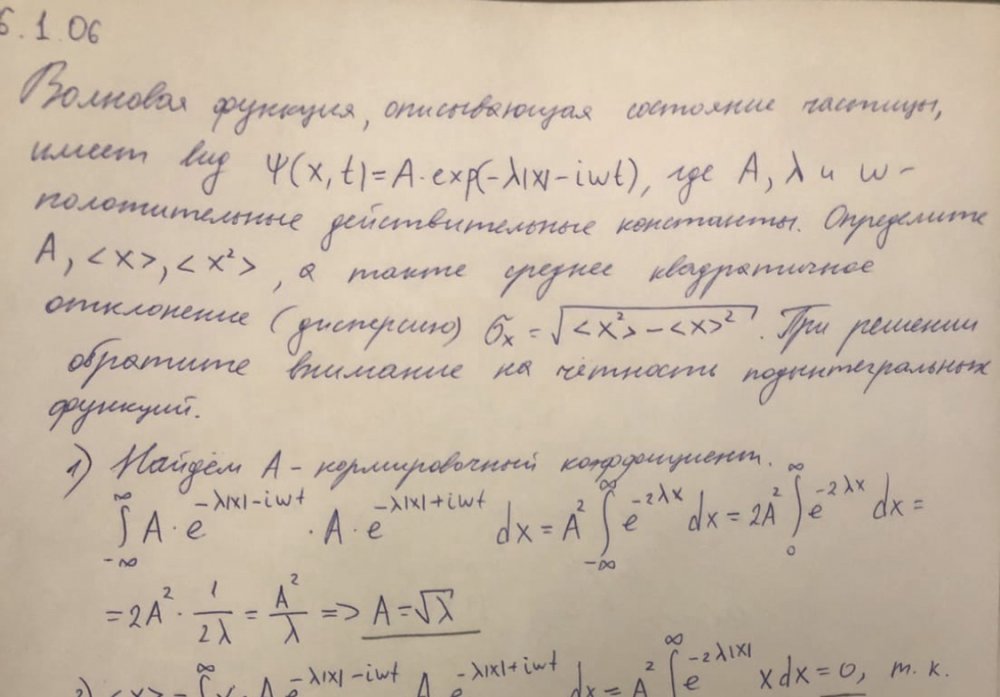 6.1.06
Волновая функция, описывающая состояние частицы,
имеет вид Ψ(x,t)=A·exp(-λ|x|-iωt), где A, λ и ω -
положительные действительные константы. Определите
A, <x>, <x²>, а также среднее квадратичное
отклонение (дисперсию) σₓ = √(<x²> - <x>²). При решении
обратите внимание на чётности подынтегральных
функций.
1) Найдём A - нормировочный коэффициент.
∫_{-∞}^{∞} A·e^{-λ|x|-iωt} · A·e^{-λ|x|+iωt} dx = A² ∫_{-∞}^{∞} e^{-2λx} dx = 2A² ∫_{0}^{∞} e^{-2λx} dx =
= 2A² · 1/2λ = A²/λ => A = √λ
2) <x> = ∫^{∞} x·A e^{-λ|x|-iωt} A e^{-λ|x|+iωt} dx = A² ∫^{∞} e^{-2λ|x|} x dx = 0, т.к.